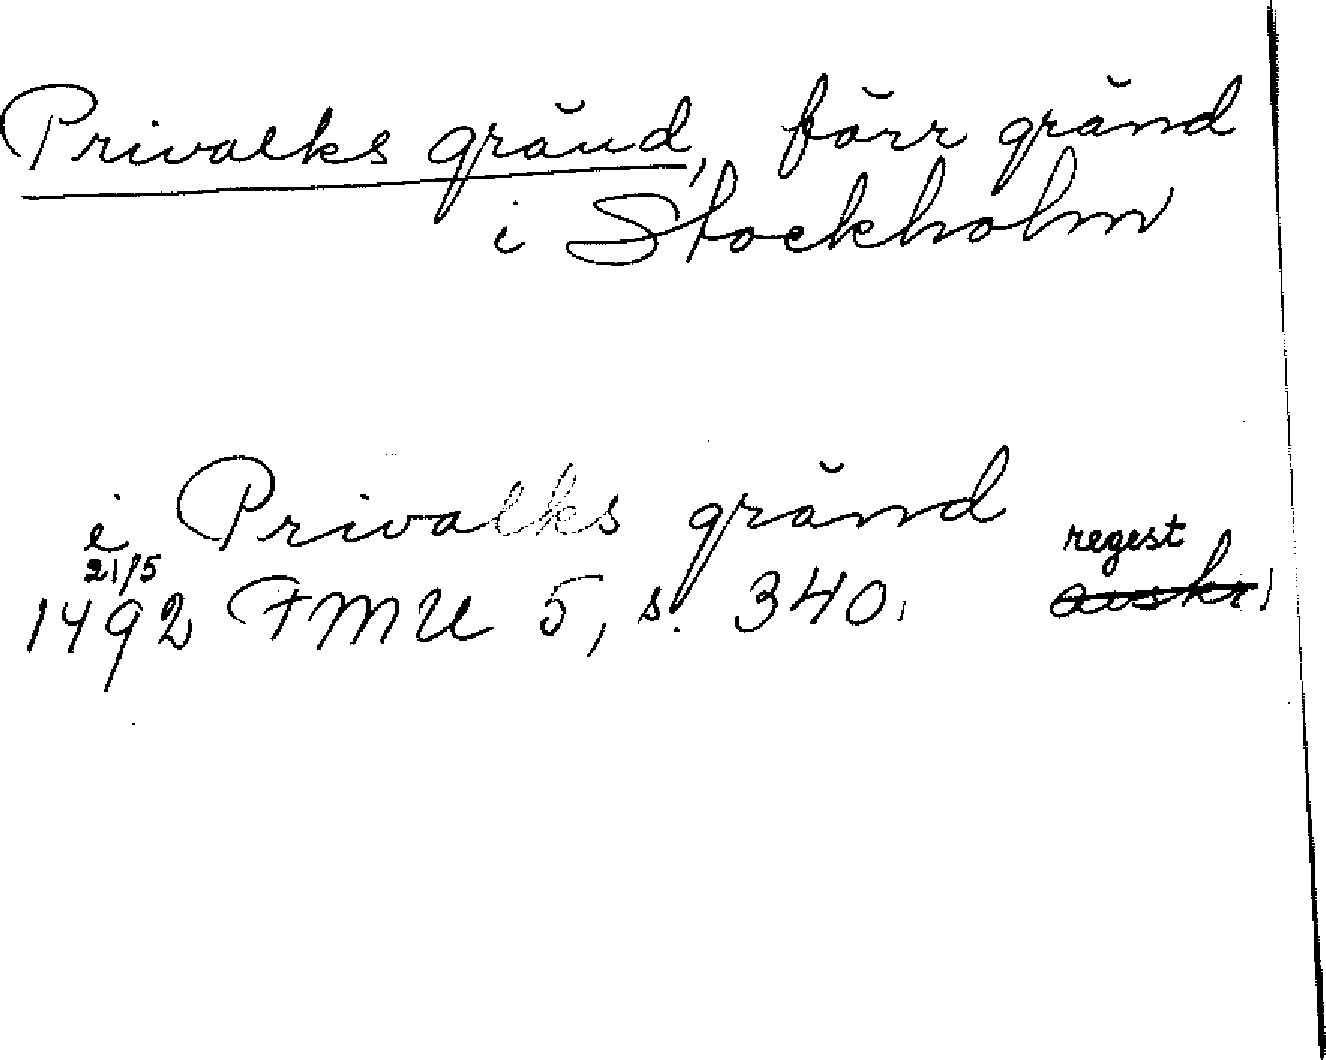 Privalks gränd, förr gränd
i Stockholm
i Privalks gränd
regest
21/5
1492 FMU 5, s. 340. avskr.